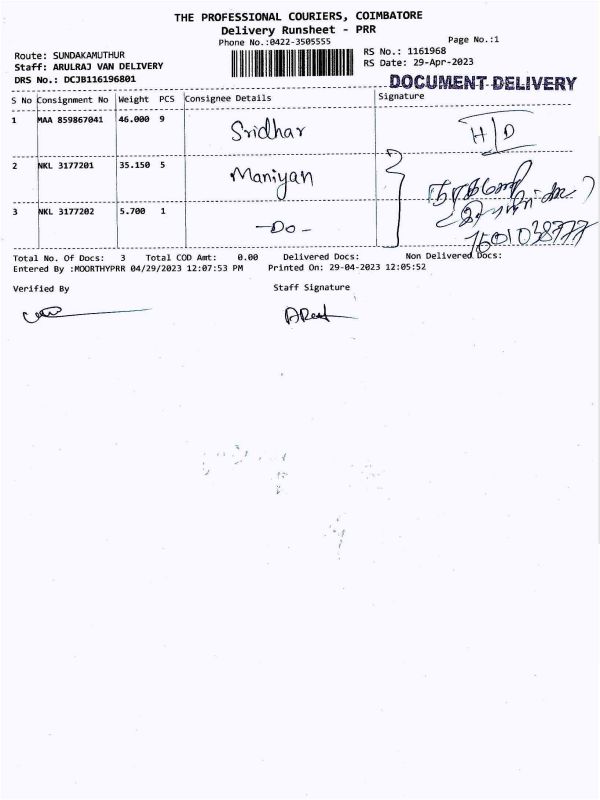 THE PROFESSIONAL COURIERS, COIMBATORE
Delivery Runsheet - PRR
Phone No.:0422-3505555
Page No.:1
Route: SUNDAKAMUTHUR
RS No.: 1161968
Staff: ARULRAJ VAN DELIVERY
RS Date: 29-Apr-2023
DRS No.: DCJB116196801
DOCUMENT DELIVERY
S No Consignment No Weight PCS Consignee Details Signature
1 MAA 859867041 46.000 9 Sridhar H/D
2 NKL 3177201 35.150 5 Maniyan
3 NKL 3177202 5.700 1 -Do-
Total No. Of Docs: 3 Total COD Amt: 0.00 Delivered Docs: Non Delivered Docs:
Entered By :MOORTHYPRR 04/29/2023 12:07:53 PM Printed On: 29-04-2023 12:05:52
Verified By Staff Signature